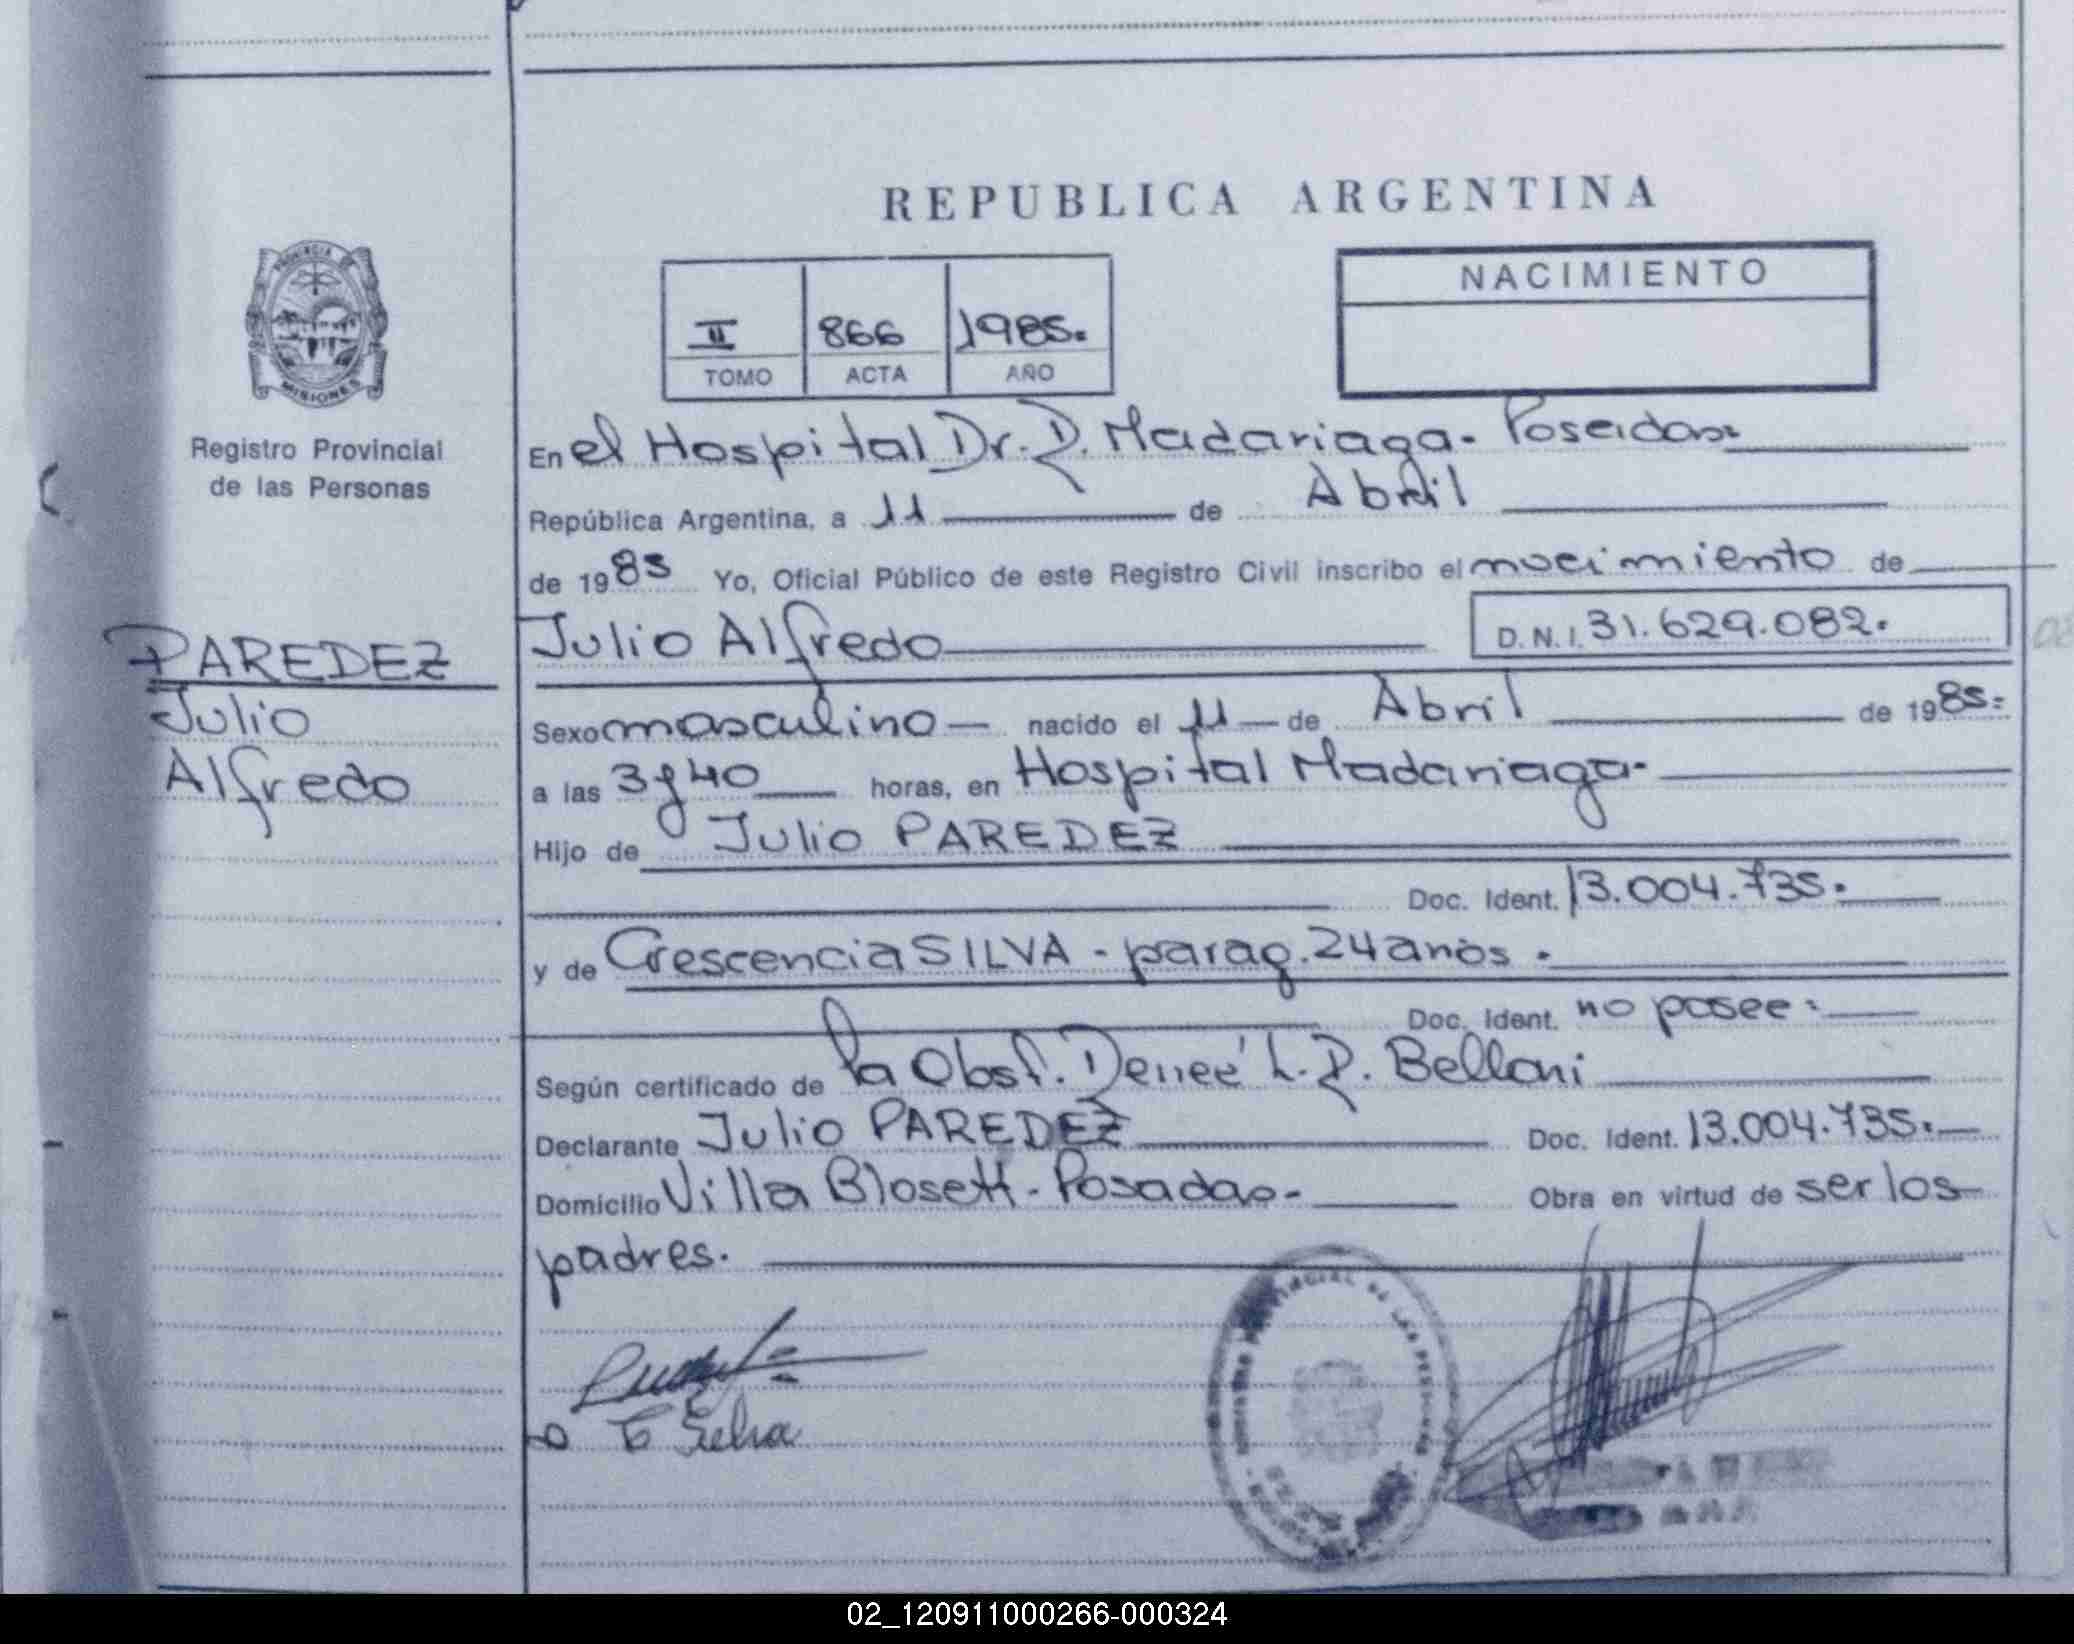 REPUBLICA ARGENTINA
PROVINCIA DE
MISIONES
Registro Provincial
de las Personas
II 866 1985.
TOMO ACTA AÑO
NACIMIENTO
En el Hospital Dr. R. Madariaga - Posadas
República Argentina, a 11 de Abril
de 1985 Yo, Oficial Público de este Registro Civil inscribo el nacimiento de
Julio Alfredo D.N.I. 31.629.082.
PAREDEZ
Julio
Alfredo
Sexo masculino nacido el 11 de Abril de 1985
a las 3 y 40 horas, en Hospital Madariaga
Hijo de Julio PAREDEZ
Doc. Ident. 13.004.735.
y de Crescencia SILVA - parag. 24 años.
Doc. Ident. no posee
Según certificado de la Obst. Reneé L. R. Belloni
Declarante Julio PAREDEZ Doc. Ident. 13.004.735.
Domicilio Villa Blosett - Posadas - Obra en virtud de ser los
padres.
C Silva
02_120911000266-000324